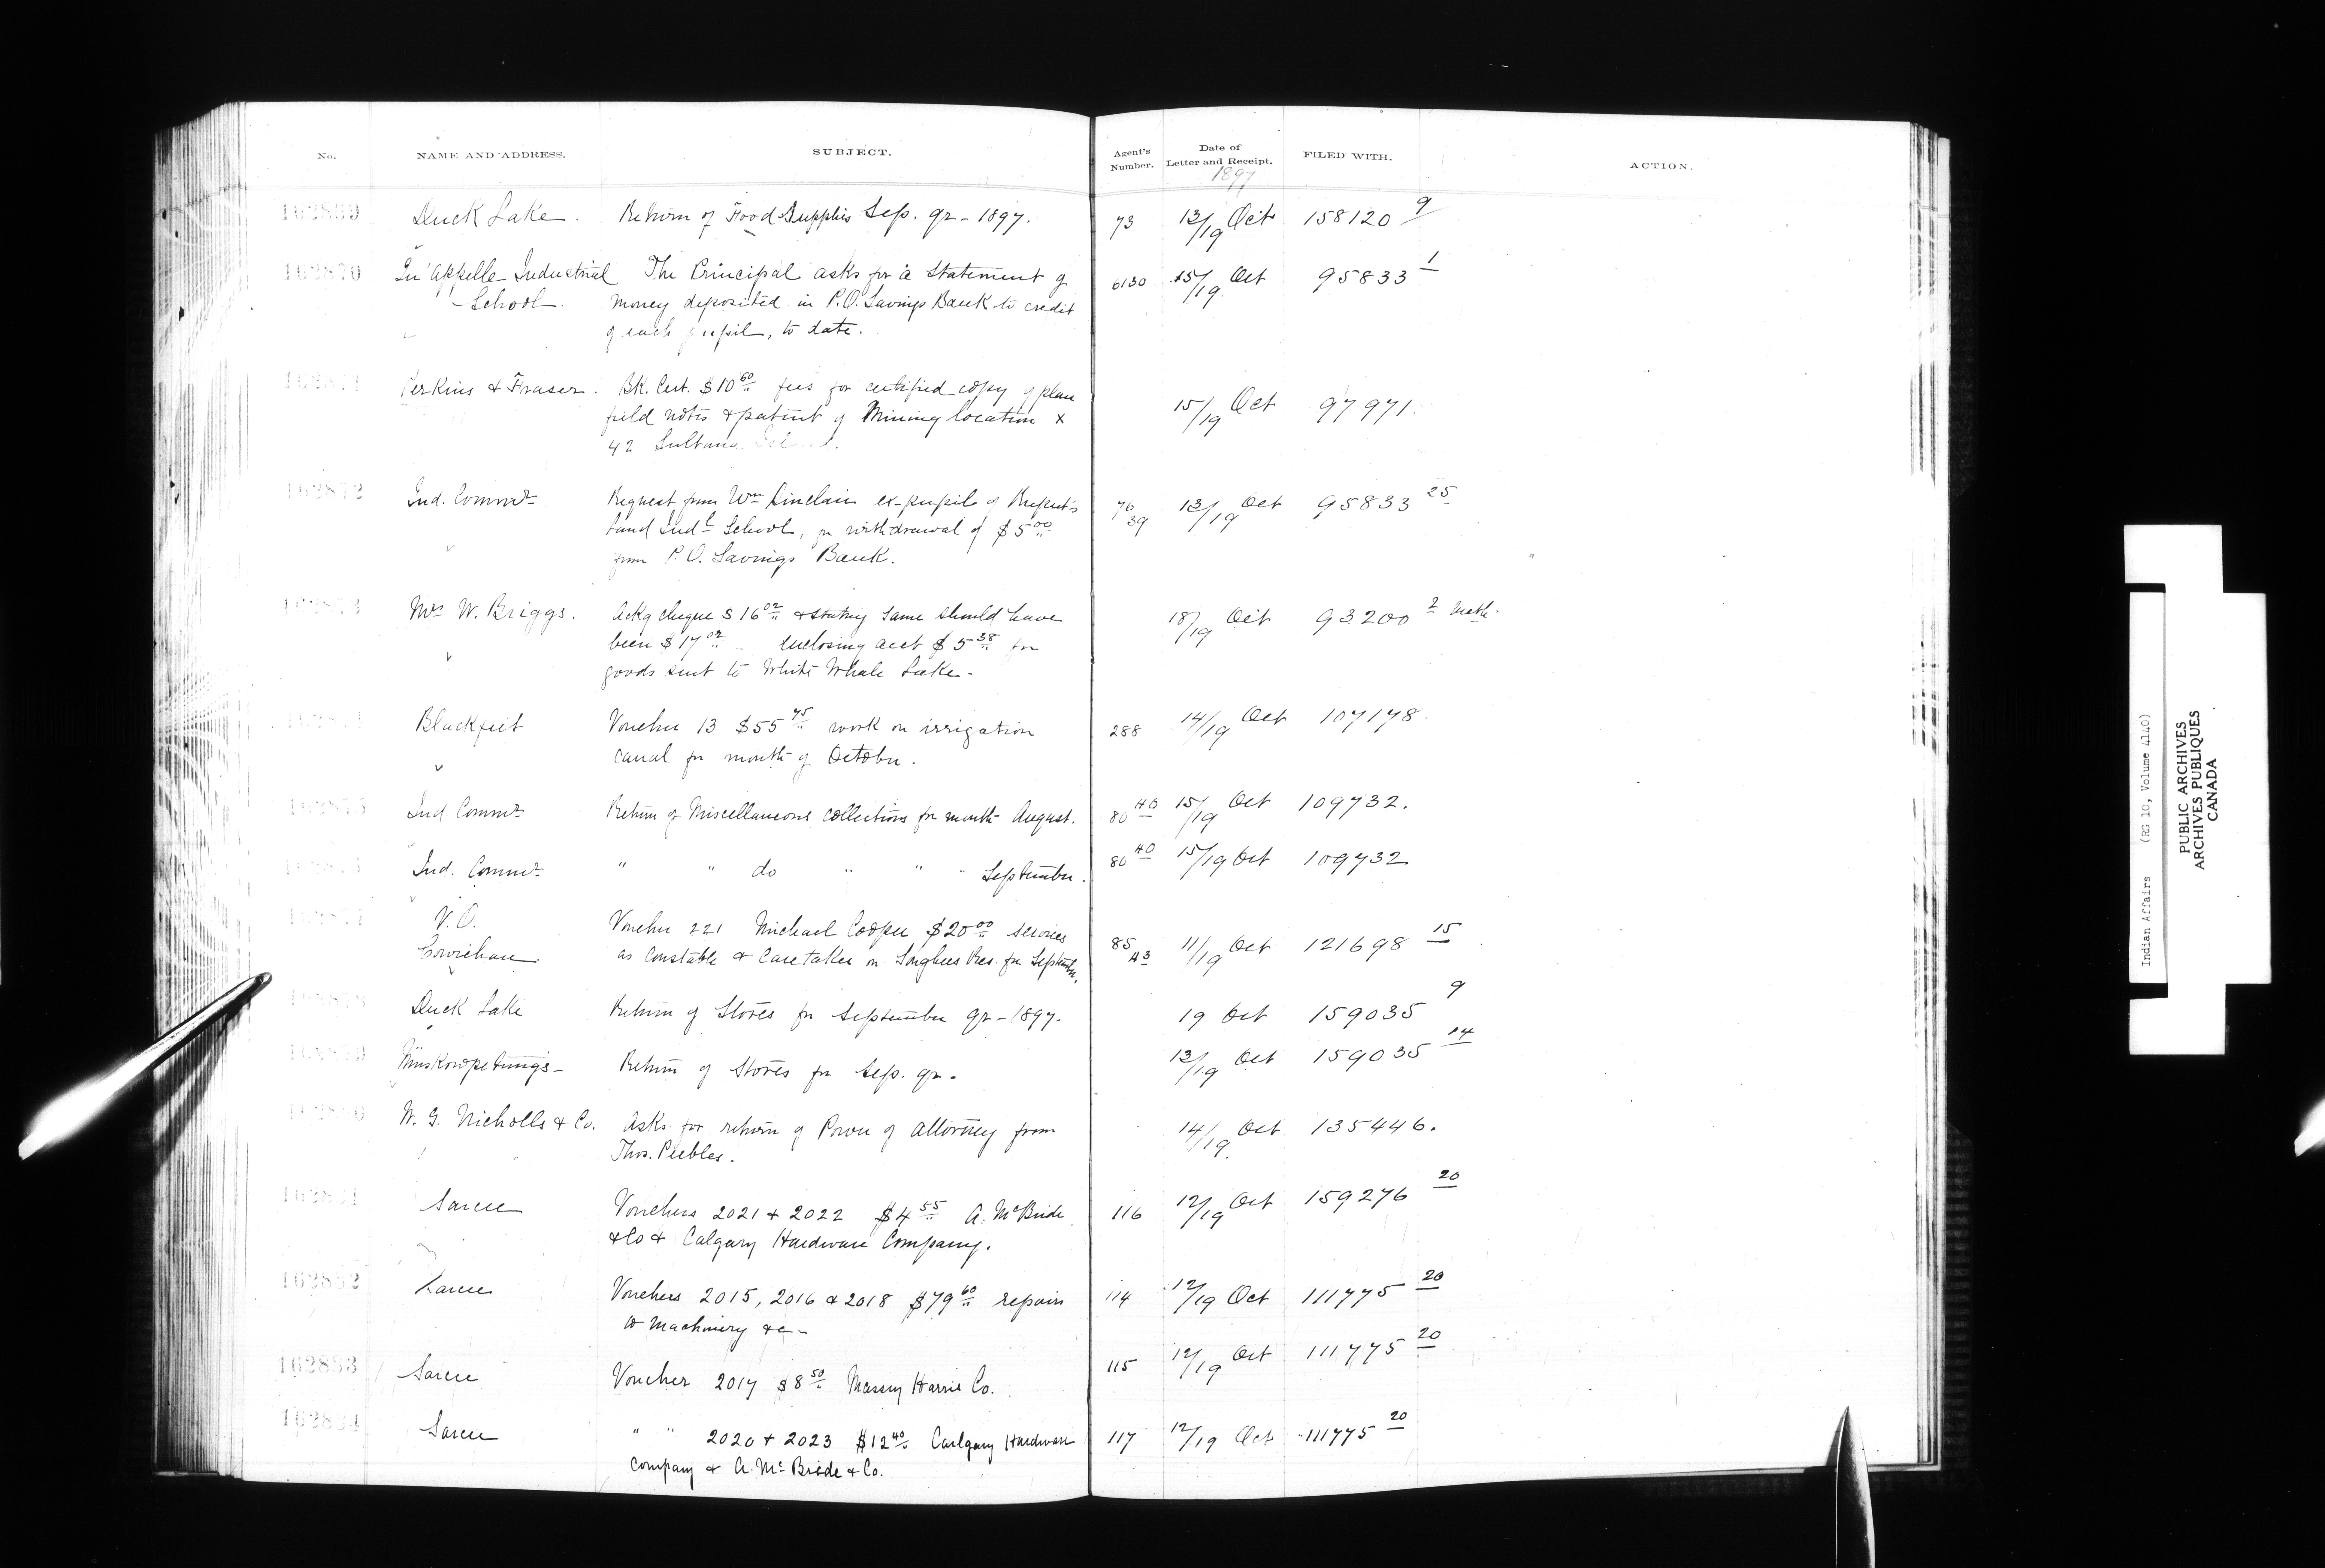 No. NAME AND ADDRESS. SUBJECT. Agent's Number. Date of Letter and Receipt. FILED WITH. ACTION.
1897
162869 Duck Lake. Return of Food Supplies Sep. qr - 1897. 73 13/19 Oct 158120 9
162870 Qu'Appelle Industrial The Principal asks for a statement of 6130 15/19 Oct 95833 1
School. money deposited in P.O. Savings Bank to credit
of each pupil, to date.
162871 Perkins & Fraser. Bk. Cert. $10 60 fees for certified copy of plan
field notes & patent of Mining location X 15/19 Oct 97971
42 Sultana Island.
162872 Ind. Commr. Request from Wm Sinclair ex-pupil of Rupert's 76/39 13/19 Oct 95833 25
Land Indl School, for withdrawal of $5 00
from P.O. Savings Bank.
162873 W. Briggs. Ackg cheque $16 02 & stating same should have 18/19 Oct 93200 2
been $17 02. Enclosing acct $5 38 for
goods sent to White Whale Lake -
162874 Blackfeet Voucher 13 $55 75 work on irrigation 288 14/19 Oct 107178.
canal for month of October.
162875 Ind. Commr. Return of Miscellaneous collections for month August. 80 40 15/19 Oct 109732.
162876 Ind. Commr. " " do " " " September. 80 40 15/19 Oct 109732
162877 V.O. Voucher 221 Michael Cooper $20 00 services
Cowichan. as Constable & Caretaker on Songhees Res. for September. 85/43 11/19 Oct 121698 15
162878 Duck Lake Return of Stores for September qr - 1897. 19 Oct 159035 9
162879 Muskowpetung's - Return of Stores for Sep. qr. 13/19 Oct 159035 14
162880 W. G. Nicholls & Co. Asks for return of Power of Attorney from 14/19 Oct 135446.
Thos. Peebles.
162881 Sarcee Vouchers 2021 & 2022 $4 55 A. McBride 116 12/19 Oct 159276 20
& Co & Calgary Hardware Company.
162882 Sarcee Vouchers 2015, 2016 & 2018 $79 60 repairs 114 12/19 Oct 111775 20
to machinery &c -
162883 Sarcee Voucher 2017 $8 50 Massey Harris Co. 115 12/19 Oct 111775 20
162884 Sarcee " " 2020 & 2023 $12 40 Calgary Hardware 117 12/19 Oct 111775 20
Company & A. McBride & Co.
Indian Affairs (RG 10, Volume 4140)
PUBLIC ARCHIVES
ARCHIVES PUBLIQUES
CANADA